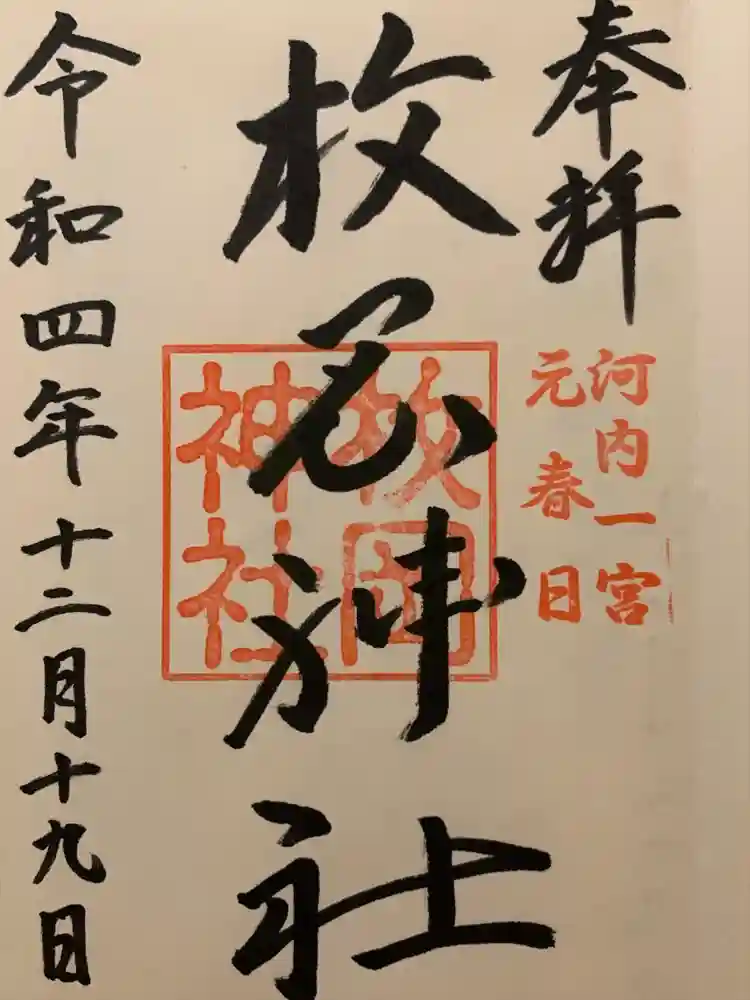 奉拝
河内一宮
元春日
枚岡神社
枚岡
神社
令和四年十二月十九日